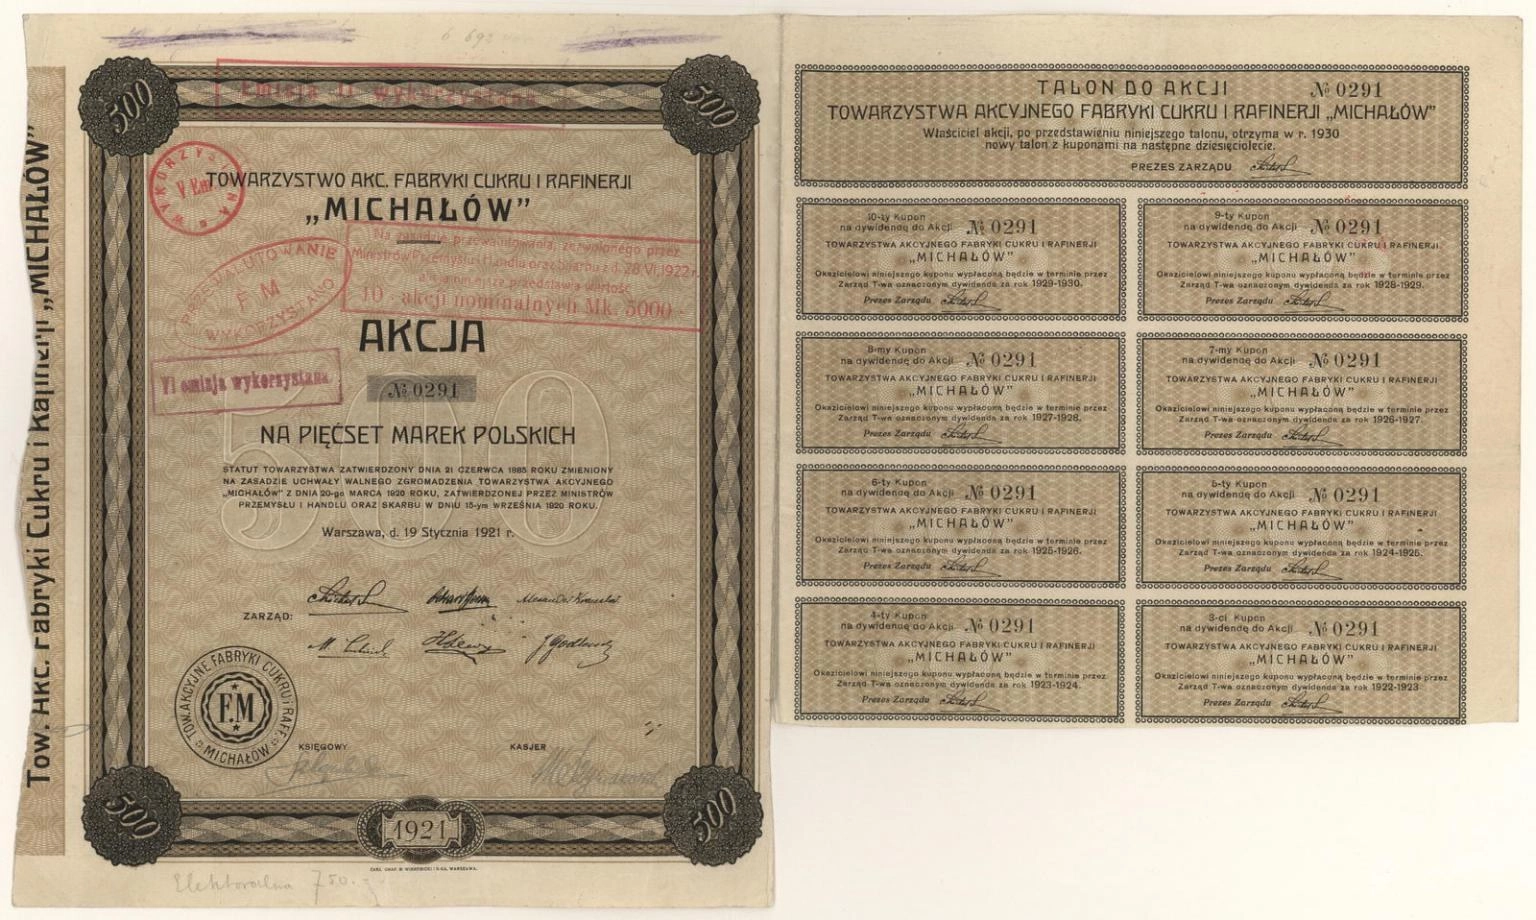 6 692
500
500
Emisja II wykorzystana
WYKORZYSTANA
V Em.
TOWARZYSTWO AKC. FABRYKI CUKRU I RAFINERJI
„MICHAŁÓW”
Na zasadzie przewalutowania, zezwolonego przez
Ministrów Przemysłu i Handlu oraz Skarbu z d. 28 VI 1922 r.
akcja niniejsza przedstawia wartość
10 akcji nominalnych Mk. 5000.-
PRZEWALUTOWANIE
F M
WYKORZYSTANO
AKCJA
VI emisja wykorzystana
№ 0291
500
NA PIĘĆSET MAREK POLSKICH
STATUT TOWARZYSTWA ZATWIERDZONY DNIA 21 CZERWCA 1885 ROKU ZMIENIONY
NA ZASADZIE UCHWAŁY WALNEGO ZGROMADZENIA TOWARZYSTWA AKCYJNEGO
„MICHAŁÓW” Z DNIA 20-go MARCA 1920 ROKU, ZATWIERDZONEJ PRZEZ MINISTRÓW
PRZEMYSŁU I HANDLU ORAZ SKARBU W DNIU 15-ym WRZEŚNIA 1920 ROKU.
Warszawa, d. 19 Stycznia 1921 r.
ZARZĄD:
TOW. AKCYJNE FABRYKI CUKRU i RAFF.
F.M
MICHAŁÓW
KSIĘGOWY
KASJER
500
1921
500
ZAKŁ. GRAF. B. WIERZBICKI I S-KA, WARSZAWA.
Elektoralna 750.-
Tow. Akc. Fabryki Cukru i Rafinerji „MICHAŁÓW”
TALON DO AKCJI № 0291
TOWARZYSTWA AKCYJNEGO FABRYKI CUKRU I RAFINERJI „MICHAŁÓW”
Właściciel akcji, po przedstawieniu niniejszego talonu, otrzyma w r. 1930
nowy talon z kuponami na następne dziesięciolecie.
PREZES ZARZĄDU
10-ty Kupon
na dywidendę do Akcji № 0291
TOWARZYSTWA AKCYJNEGO FABRYKI CUKRU I RAFINERJI
„MICHAŁÓW”
Okazicielowi niniejszego kuponu wypłaconą będzie w terminie przez
Zarząd T-wa oznaczonym dywidenda za rok 1929-1930.
Prezes Zarządu
9-ty Kupon
na dywidendę do Akcji № 0291
TOWARZYSTWA AKCYJNEGO FABRYKI CUKRU I RAFINERJI
„MICHAŁÓW”
Okazicielowi niniejszego kuponu wypłaconą będzie w terminie przez
Zarząd T-wa oznaczonym dywidenda za rok 1928-1929.
Prezes Zarządu
8-my Kupon
na dywidendę do Akcji № 0291
TOWARZYSTWA AKCYJNEGO FABRYKI CUKRU I RAFINERJI
„MICHAŁÓW”
Okazicielowi niniejszego kuponu wypłaconą będzie w terminie przez
Zarząd T-wa oznaczonym dywidenda za rok 1927-1928.
Prezes Zarządu
7-my Kupon
na dywidendę do Akcji № 0291
TOWARZYSTWA AKCYJNEGO FABRYKI CUKRU I RAFINERJI
„MICHAŁÓW”
Okazicielowi niniejszego kuponu wypłaconą będzie w terminie przez
Zarząd T-wa oznaczonym dywidenda za rok 1926-1927.
Prezes Zarządu
6-ty Kupon
na dywidendę do Akcji № 0291
TOWARZYSTWA AKCYJNEGO FABRYKI CUKRU I RAFINERJI
„MICHAŁÓW”
Okazicielowi niniejszego kuponu wypłaconą będzie w terminie przez
Zarząd T-wa oznaczonym dywidenda za rok 1925-1926.
Prezes Zarządu
5-ty Kupon
na dywidendę do Akcji № 0291
TOWARZYSTWA AKCYJNEGO FABRYKI CUKRU I RAFINERJI
„MICHAŁÓW”
Okazicielowi niniejszego kuponu wypłaconą będzie w terminie przez
Zarząd T-wa oznaczonym dywidenda za rok 1924-1925.
Prezes Zarządu
4-ty Kupon
na dywidendę do Akcji № 0291
TOWARZYSTWA AKCYJNEGO FABRYKI CUKRU I RAFINERJI
„MICHAŁÓW”
Okazicielowi niniejszego kuponu wypłaconą będzie w terminie przez
Zarząd T-wa oznaczonym dywidenda za rok 1923-1924.
Prezes Zarządu
3-ci Kupon
na dywidendę do Akcji № 0291
TOWARZYSTWA AKCYJNEGO FABRYKI CUKRU I RAFINERJI
„MICHAŁÓW”
Okazicielowi niniejszego kuponu wypłaconą będzie w terminie przez
Zarząd T-wa oznaczonym dywidenda za rok 1922-1923
Prezes Zarządu